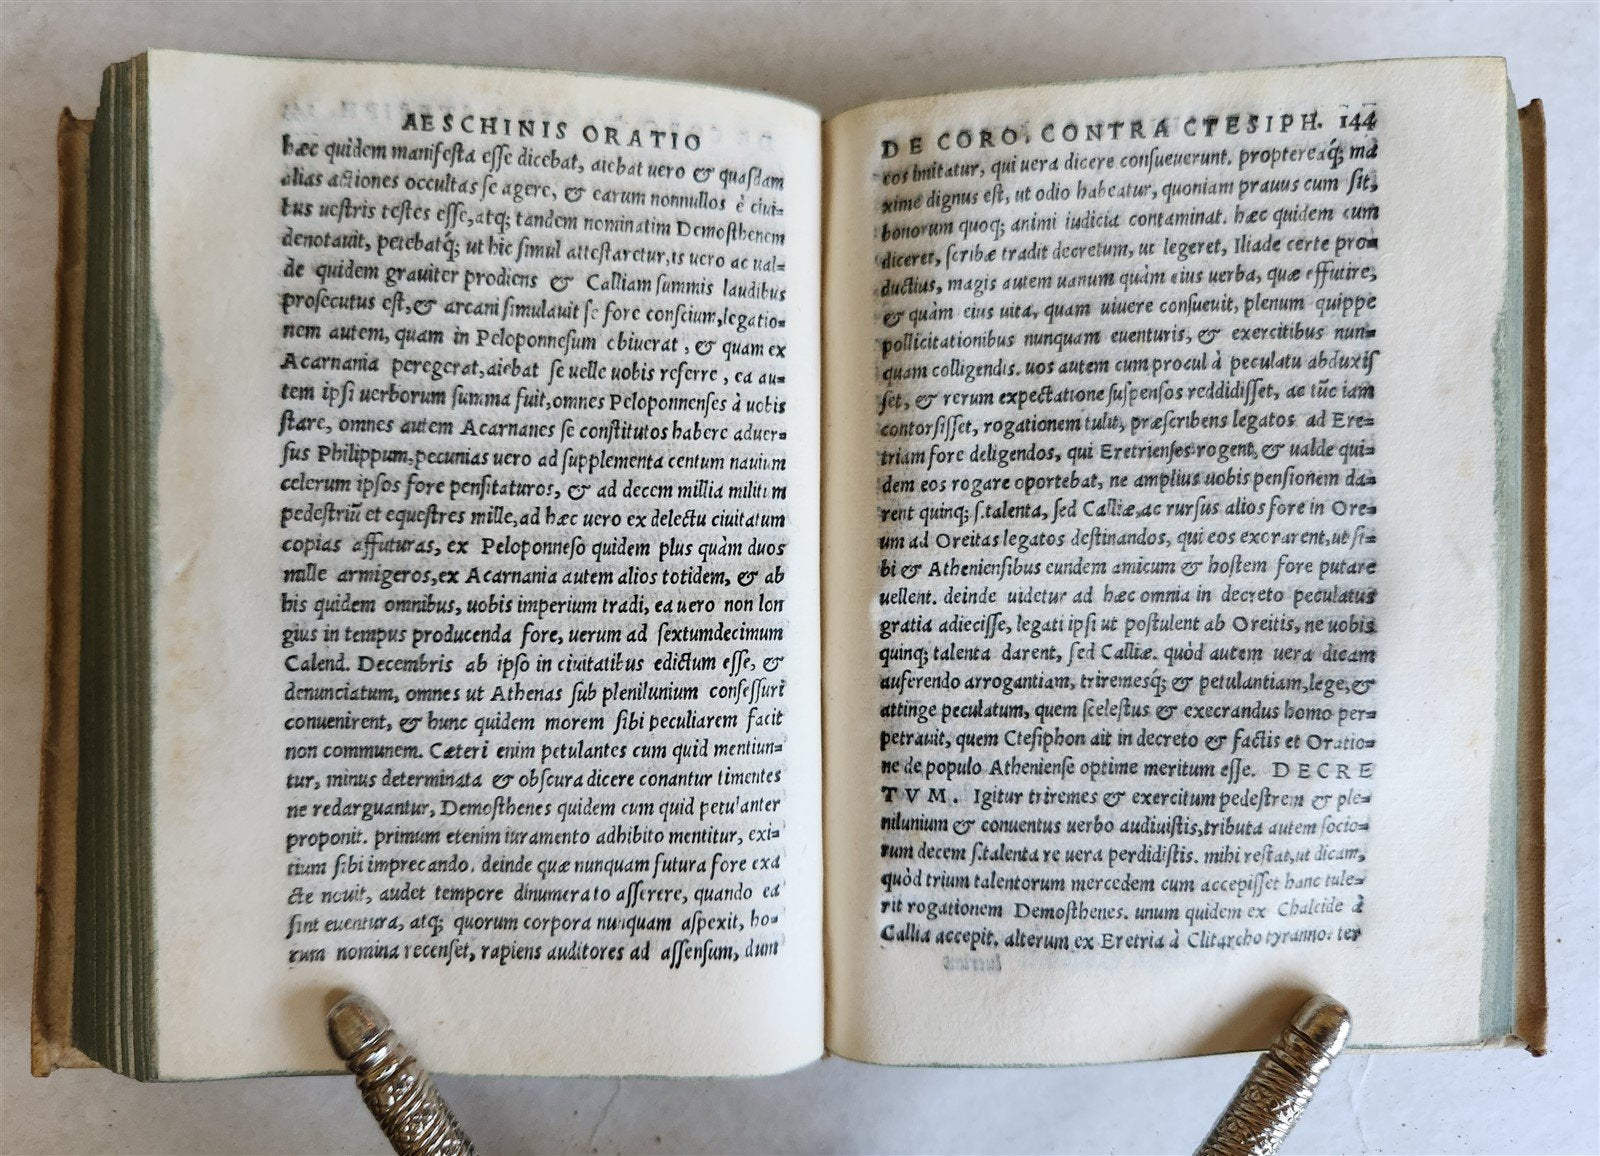 AESCHINIS ORATIO
hæc quidem manifesta esse dicebat, aiebat uero & quasdam
alias actiones occultas se agere, & earum nonnullos è ciui-
bus uestris testes esse, atq; tandem nominatim Demosthenem
denotauit, petebatq́; ut hic simul attestaretur, is uero ac ual-
de quidem grauiter prodiens & Calliam summis laudibus
prosecutus est, & arcani simulauit se fore conscium, legatio-
nem autem, quam in Peloponnesum obiuerat, & quam ex
Acarnania peregerat, aiebat se uelle uobis referre, ea au-
tem ipsi uerborum summa fuit, omnes Peloponnenses à uobis
stare, omnes autem Acarnanes se constitutos habere aduer-
sus Philippum, pecunias uero ad supplementa centum nauium
celerum ipsos fore pensitaturos, & ad decem millia militum
pedestriũ et equestres mille, ad hæc uero ex delectu ciuitatum
copias affuturas, ex Peloponneso quidem plus quàm duos
mille armigeros, ex Acarnania autem alios totidem, & ab
his quidem omnibus, uobis imperium tradi, ea uero non lon
gius in tempus producenda fore, uerum ad sextumdecimum
Calend. Decembris ab ipso in ciuitatibus edictum esse, &
denunciatum, omnes ut Athenas sub plenilunium consessuri
conuenirent, & hunc quidem morem sibi peculiarem facit
non communem. Cæteri enim petulantes cum quid mentiun-
tur, minus determinata & obscura dicere conantur timentes
ne redarguantur, Demosthenes quidem cum quid petulanter
proponit. primum etenim iuramento adhibito mentitur, exi-
tium sibi imprecando. deinde quæ nunquam futura fore exa
cte nouit, audet tempore dinumerato asserere, quando ea
sint euentura, atq; quorum corpora nunquam aspexit, ho-
rum nomina recenset, rapiens auditores ad assensum, dum
DE CORO. CONTRA CTESIPH. 144
eos imitatur, qui uera dicere consueuerunt. propterea q́; ma
xime dignus est, ut odio habeatur, quoniam prauus cum sit,
bonorum quoq; animi iudicia contaminat. hæc quidem cum
diceret, scribæ tradit decretum, ut legeret, Iliade certe pro-
ductius, magis autem uanum quàm eius uerba, quæ effutire,
& quàm eius uita, quam uiuere consueuit, plenum quippe
pollicitationibus nunquam euenturis, & exercitibus nun-
quam colligendis. uos autem cum procul à peculatu abduxis
set, & rerum expectatione suspensos reddidisset, ac tũc iam
contorsisset, rogationem tulit, præscribens legatos ad Ere-
triam fore deligendos, qui Eretrienses rogent, & ualde qui-
dem eos rogare oportebat, ne amplius uobis pensionem da-
rent quinq; s. talenta, sed Calliæ, ac rursus alios fore in Ore-
um ad Oreitas legatos destinandos, qui eos exorarent, ut si-
bi & Atheniensibus eundem amicum & hostem fore putare
uellent. deinde uidetur ad hæc omnia in decreto peculatus
gratia adiecisse, legati ipsi ut postulent ab Oreitis, ne uobis
quinq; talenta darent, sed Calliæ. quòd autem uera dicam
auferendo arrogantiam, triremesq́; & petulantiam, lege, &
attinge peculatum, quem scelestus & execrandus homo per-
petrauit, quem Ctesiphon ait in decreto & factis et Oratio-
ne de populo Atheniense optime meritum esse. DECRE
TVM. Igitur triremes & exercitum pedestrem & ple-
nilunium & conuentus uerbo audiuistis, tributa autem socio-
rum decem s. talenta re uera perdidistis. mihi restat, ut dicam,
quòd trium talentorum mercedem cum accepisset hanc tule-
rit rogationem Demosthenes. unum quidem ex Chalcide à
Callia accepit. alterum ex Eretria à Clitarcho tyranno: ter